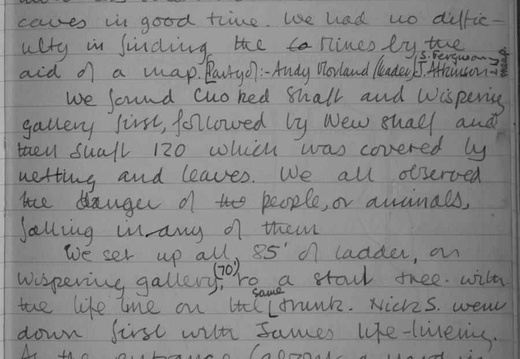 caves in good time. We had no diffic-
ulty in finding the Mines by the
aid of a map. [Party of:- Andy Morland (leader) S. Ferguson J. Atkinson
We found Choked Shaft and Wispering
gallery first, followed by New Shaft and
then Shaft 120 which was covered by
netting and leaves. We all observed
the danger of people, or animals,
falling in any of them
We set up all 85' of ladder, on
Wispering gallery (70') to a stout tree. with
the life line on the same trunk. Nick S. went
down first with James life-lineing.
At the entrance